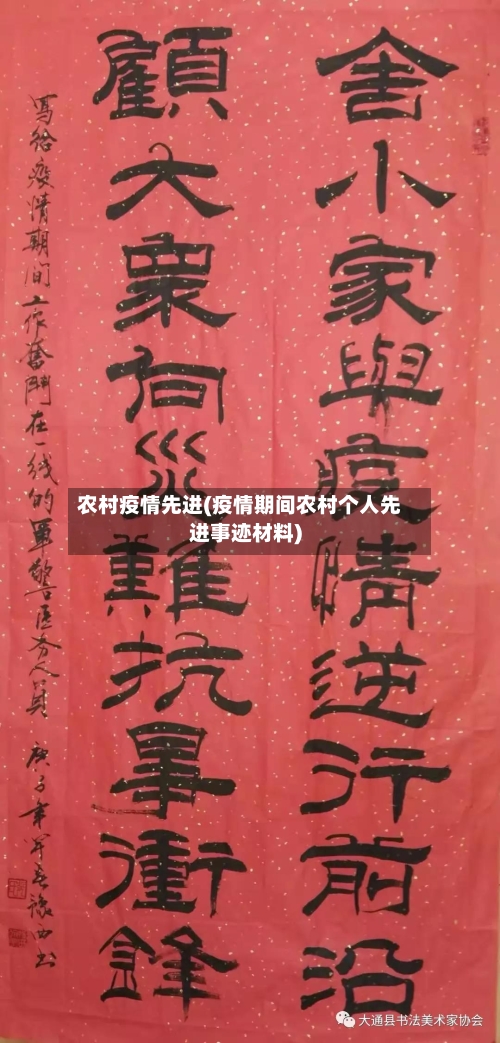 舍小家與疫情逆行前沿
顧大衆向災難抗衝鋒
寫给疫情期间工作奮鬥在一线的軍警医务人員 庚子年豫西书
农村疫情先进(疫情期间农村个人先
进事迹材料)
大通县书法美术家协会